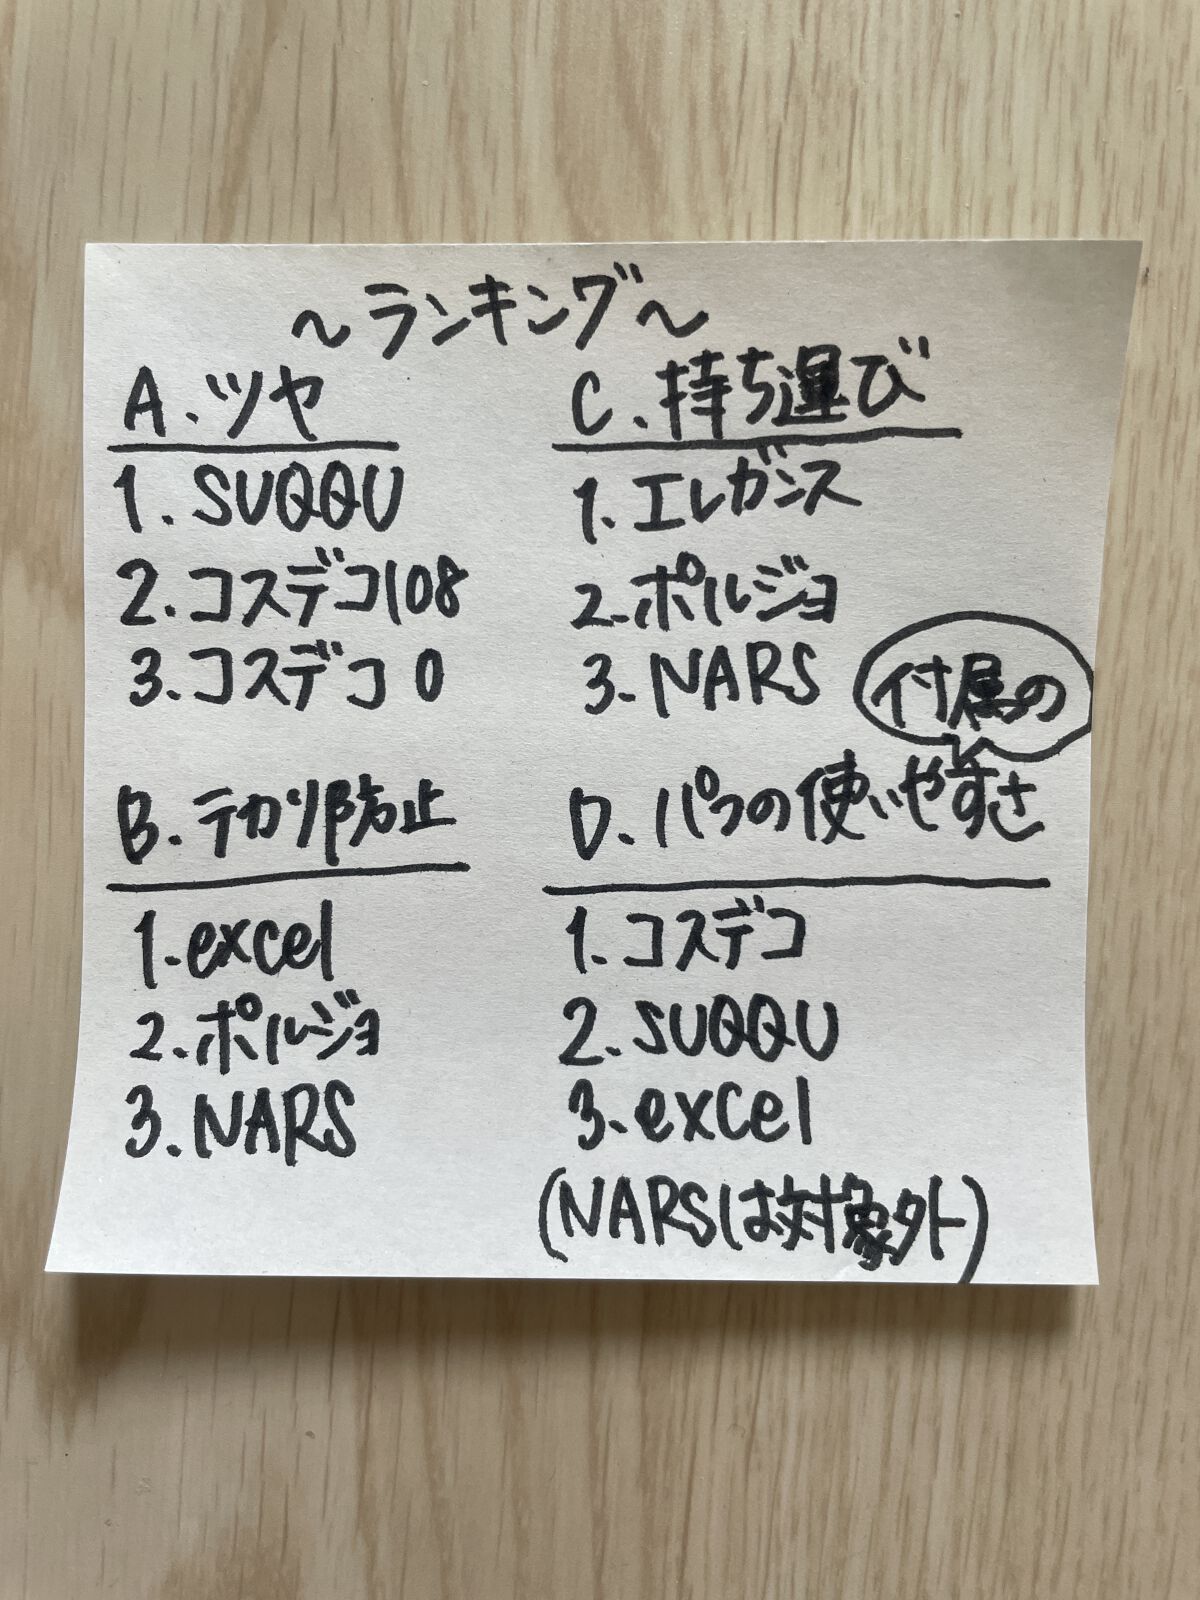 ～ランキング～
A.ツヤ
1.SUQQU
2.コスデコ108
3.コスデコ0
B.テカリ防止
1.excel
2.ポルジョ
3.NARS
C.持ち運び
1.エレガンス
2.ポルジョ
3.NARS
付属の
D.パフの使いやすさ
1.コスデコ
2.SUQQU
3.excel
(NARSは対象外)